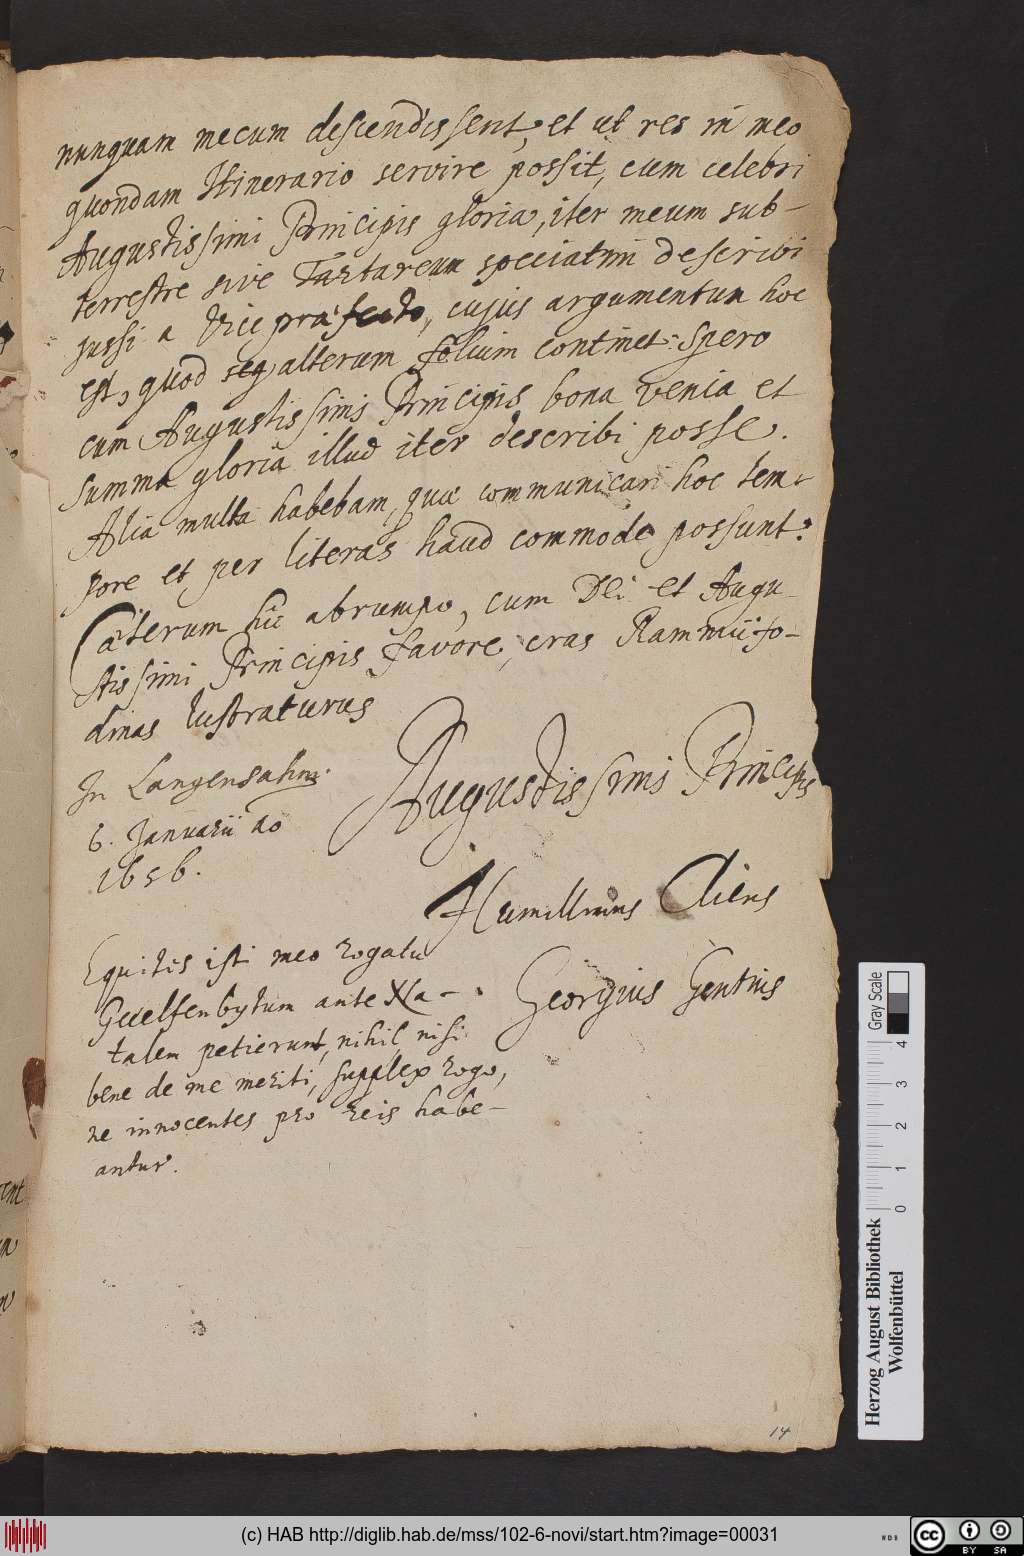 nunquam mecum descendissent, et ut res in meo
quondam Itinerario servire possit, cum celebri
Augustissimi Principis gloria, iter meum sub-
terrestre sive Tartareum speciatim describi
jussi a Vice præfecto, cujus argumentum hoc
est, quod seq alterum folium continet: Spero
cum Augustissimi Principis bona venia et
summa gloria illud iter describi posse.
Alia multa habebam, quæ communicari hoc tem-
pore et per literas haud commode possunt:
Cæterum hic abrumpo, cum Dei et Augu-
stissimi Principis favore, cras Rammii fo-
dinas lustraturus
In Langensaltza.
6. Januarii ao
1656.
Augustissimi Principis
Humillimus Cliens
Georgius Gentius
Equites isti meo rogatu
Guelfenbytum ante Na-
talem petierunt, nihil nisi
bene de me meriti, supplex rogo,
ne innocentes pro reis habe-
antur.
14
Gray Scale
0 1 2 3 4
Herzog August Bibliothek
Wolfenbüttel
(c) HAB http://diglib.hab.de/mss/102-6-novi/start.htm?image=00031
WDB
cc BY SA